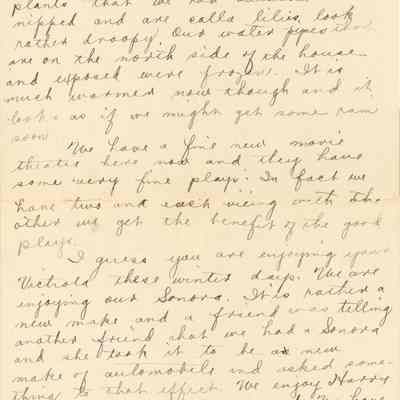 plants that we had
nipped and are calla lilies look
rather droopy. Our water pipes that
are on the north side of the house
and exposed were frozen. It is
much warmer now though and it
looks as if we might get some rain
soon.
We have a fine new movie
theatre here now and they have
some very fine plays. In fact we
have two and each vieing with the
other we get the benefit of the good
plays.
I guess you are enjoying your
Victrola these winter days. We are
enjoying our Sonora. It is rather a
new make and a friend was telling
another friend that we had a Sonora
and she took it to be a new
make of automobile and asked some-
thing to that effect. We enjoy Harry
have